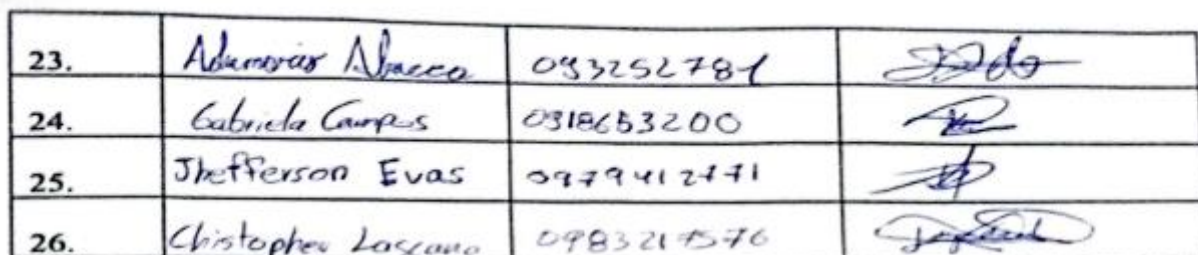 23. Abacca 093252781
24. Gabriela Campos 0918653200
25. Jhefferson Evas 0979412771
26. Chistopher Lascano 0983217576